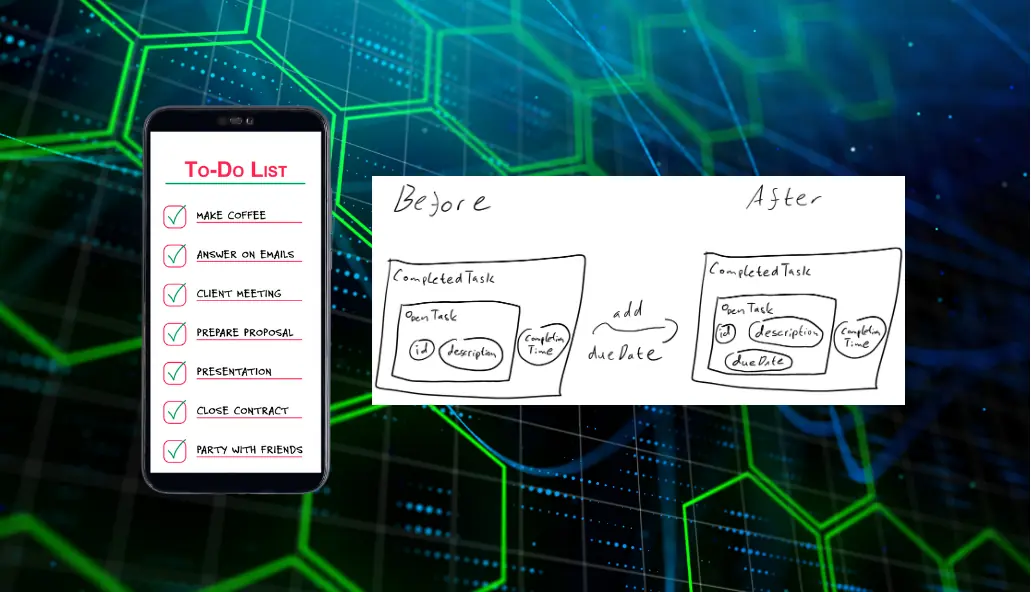 To-Do List
MAKE COFFEE
ANSWER ON EMAILS
CLIENT MEETING
PREPARE PROPOSAL
PRESENTATION
CLOSE CONTRACT
PARTY WITH FRIENDS
Before
CompletedTask
OpenTask
id
description
Completion
Time
add
dueDate
After
CompletedTask
OpenTask
id
description
dueDate
Completion
Time